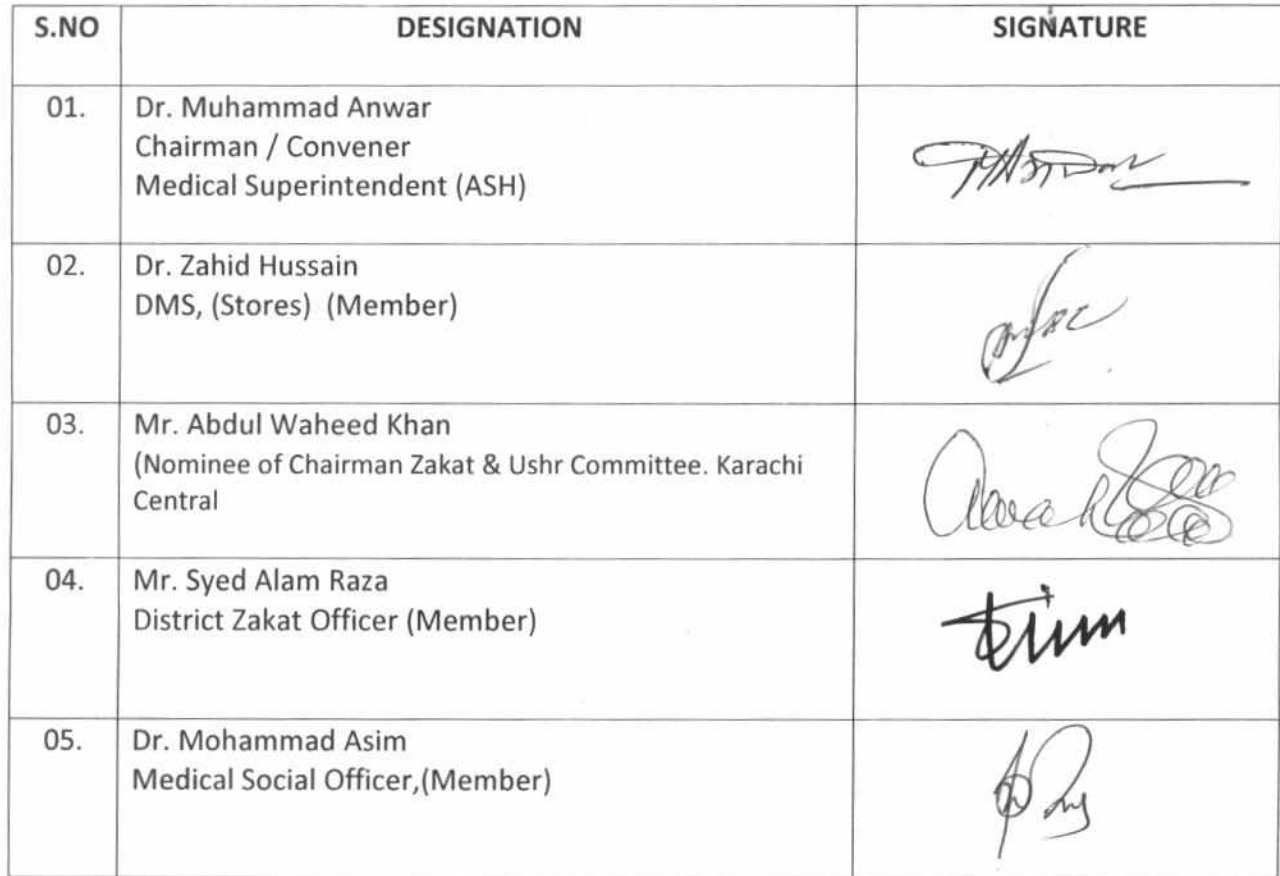 S.NO DESIGNATION SIGNATURE
01. Dr. Muhammad Anwar
Chairman / Convener
Medical Superintendent (ASH)
02. Dr. Zahid Hussain
DMS, (Stores) (Member)
03. Mr. Abdul Waheed Khan
(Nominee of Chairman Zakat & Ushr Committee. Karachi
Central
04. Mr. Syed Alam Raza
District Zakat Officer (Member)
05. Dr. Mohammad Asim
Medical Social Officer,(Member)